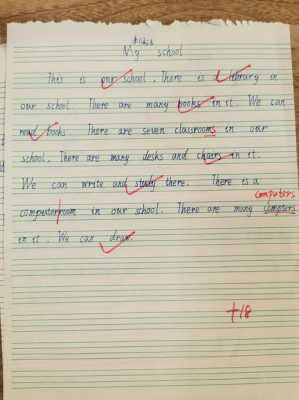 My school
This is our school. There is a library in
our school. There are many books in it. We can
read books. There are seven classrooms in our
school. There are many desks and chairs in it.
We can write and study there. There is a
computers
computer room in our school. There are many computers
in it. We can draw.
+18